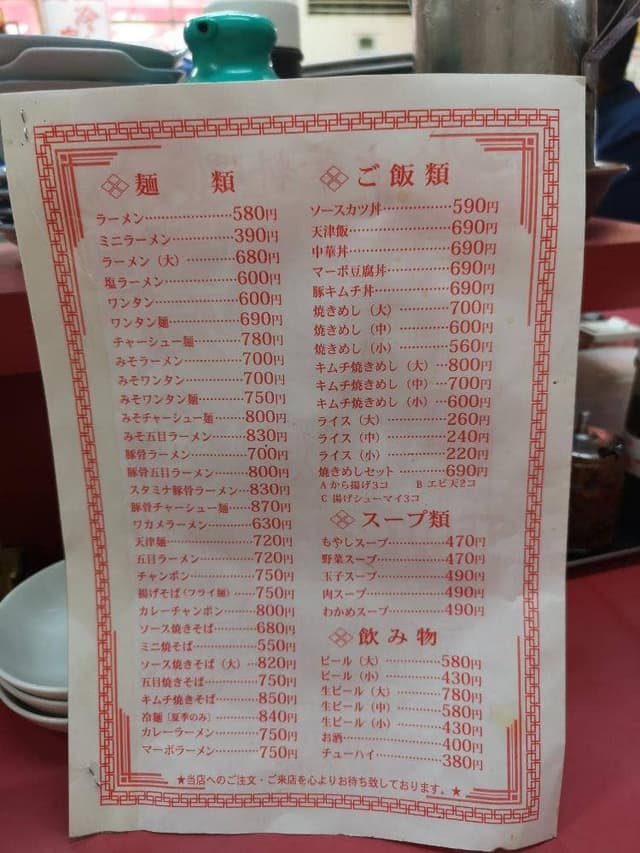 麺 類
ラーメン…………………580円
ミニラーメン……………390円
ラーメン（大）…………680円
塩ラーメン………………600円
ワンタン…………………600円
ワンタン麺………………690円
チャーシュー麺…………780円
みそラーメン……………700円
みそワンタン……………700円
みそワンタン麺…………750円
みそチャーシュー麺……800円
みそ五目ラーメン………830円
豚骨ラーメン……………700円
豚骨五目ラーメン………800円
スタミナ豚骨ラーメン…830円
豚骨チャーシュー麺……870円
ワカメラーメン…………630円
天津麺……………………720円
五目ラーメン……………720円
チャンポン………………750円
揚げそば（フライ麺）……750円
カレーチャンポン………800円
ソース焼きそば…………680円
ミニ焼そば………………550円
ソース焼きそば（大）…820円
五目焼きそば……………750円
キムチ焼きそば…………850円
冷麺［夏季のみ］…………840円
カレーラーメン…………750円
マーボラーメン…………750円
ご飯類
ソースカツ丼……………590円
天津飯……………………690円
中華丼……………………690円
マーボ豆腐丼……………690円
豚キムチ丼………………690円
焼きめし（大）…………700円
焼きめし（中）…………600円
焼きめし（小）…………560円
キムチ焼きめし（大）…800円
キムチ焼きめし（中）…700円
キムチ焼きめし（小）…600円
ライス（大）……………260円
ライス（中）……………240円
ライス（小）……………220円
焼きめしセット…………690円
A から揚げ3コ B エビ天2コ
C 揚げシューマイ3コ
スープ類
もやしスープ……………470円
野菜スープ………………470円
玉子スープ………………490円
肉スープ…………………490円
わかめスープ……………490円
飲み物
ビール（大）……………580円
ビール（小）……………430円
生ビール（大）…………780円
生ビール（中）…………580円
生ビール（小）…………430円
お酒………………………400円
チューハイ………………380円
★当店へのご注文・ご来店を心よりお待ち致しております。★